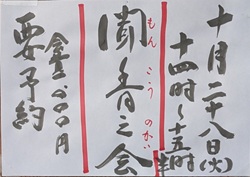 十月二十八日(火)
十四時〜十五時半
聞香之会
もんこうのかい
金二、〇〇〇円
要予約